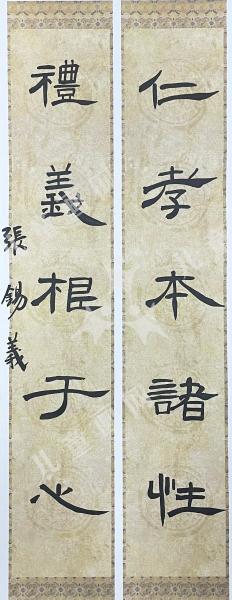 仁孝本諸性
禮義根于心
張錫義